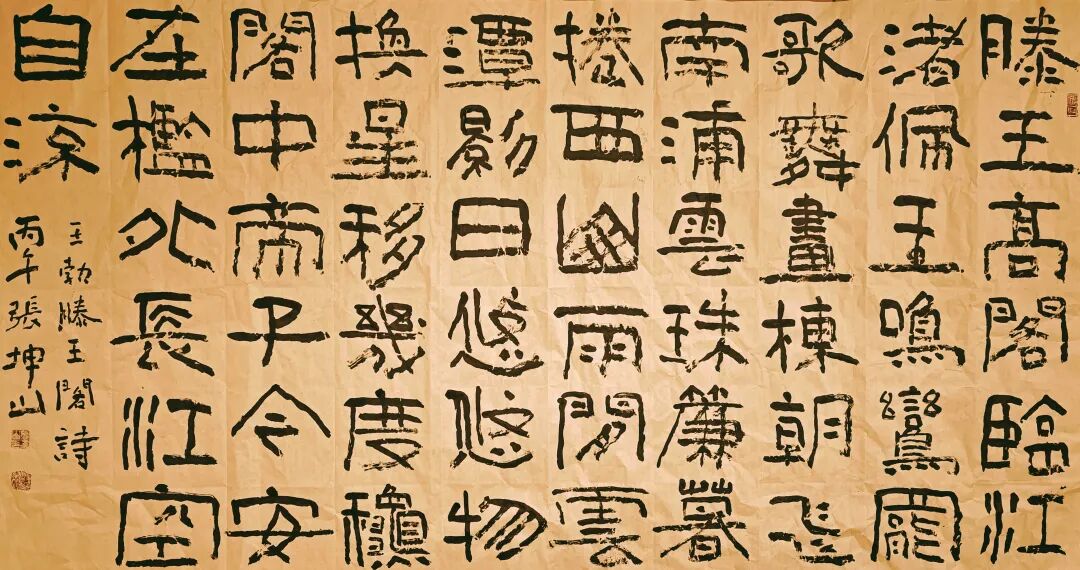 滕王高閣臨江
渚佩玉鳴鸞罷
歌舞畫棟朝飛
南浦雲珠簾暮
捲西山雨閒雲
潭影日悠悠物
換星移幾度穐
閣中帝子今安
在檻外長江空
自流
王勃滕王閣詩
丙午張坤山